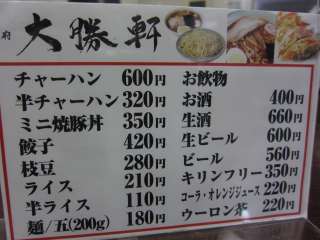 府 大勝軒
チャーハン 600円
半チャーハン 320円
ミニ焼豚丼 350円
餃子 420円
枝豆 280円
ライス 210円
半ライス 110円
麺/五(200g) 180円
お飲物
お酒 400円
生酒 660円
生ビール 600円
ビール 560円
キリンフリー 350円
コーラ・オレンジジュース 220円
ウーロン茶 220円